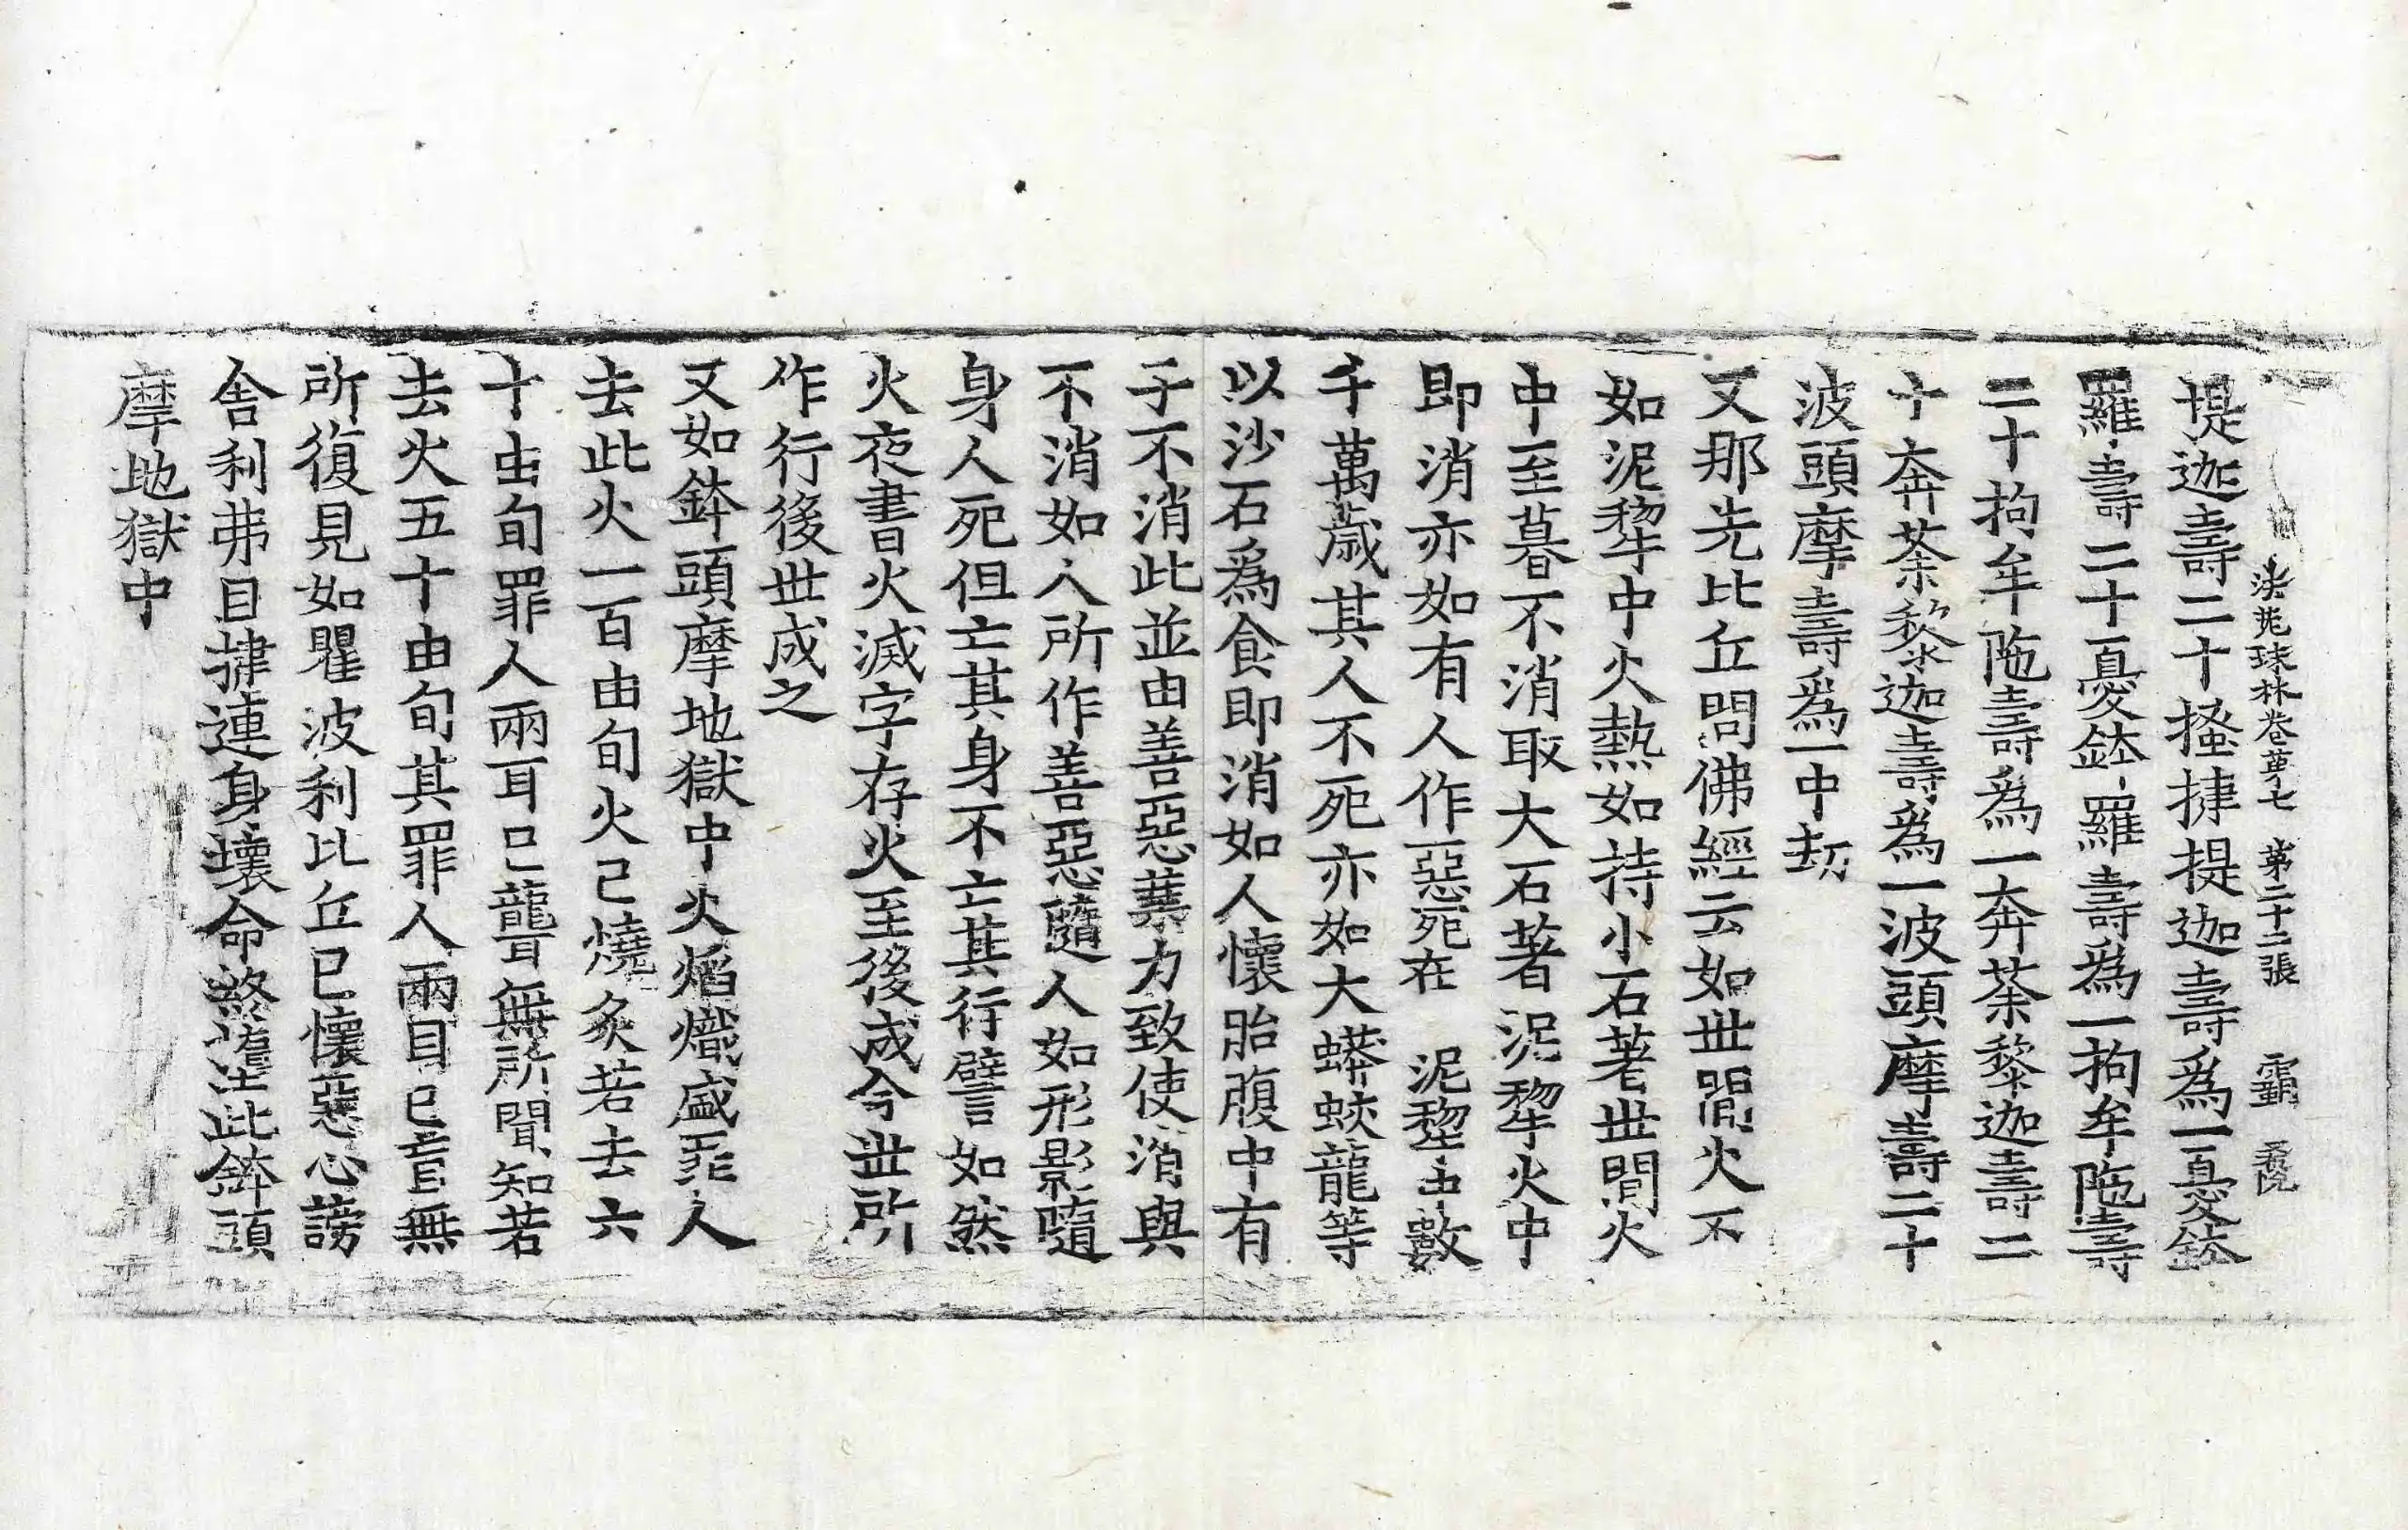 法苑珠林卷苐七 第二十二張 霸
堤迦壽二十搔揵提迦壽爲一憂鉢
羅壽二十憂鉢羅壽爲一拘牟陁壽
二十拘牟陁壽爲一奔茶黎迦壽二
十奔茶黎迦壽爲一波頭摩壽二十
波頭摩壽爲一中劫
又那先比丘問佛經云如世間火不
如泥犂中火熱如持小石著世間火
中至暮不消取大石著泥犂火中
即消亦如有人作惡死在 泥犂中數
千萬歲其人不死亦如大蟒蛟龍等
以沙石爲食即消如人懷胎腹中有
子不消此並由善惡業力致使消與
不消如人所作善惡隨人如形影隨
身人死但亡其身不亡其行譬如然
火夜書火滅字存火至後成今世所
作行後世成之
又如鉢頭摩地獄中火焰熾盛罪人
去此火一百由旬火已燒炙若去六
十由旬罪人兩耳已聾無所聞知若
去火五十由旬其罪人兩目已盲無
所復見如瞿波利比丘已懷惡心謗
舍利弗目揵連身壞命終墮此鉢頭
摩地獄中